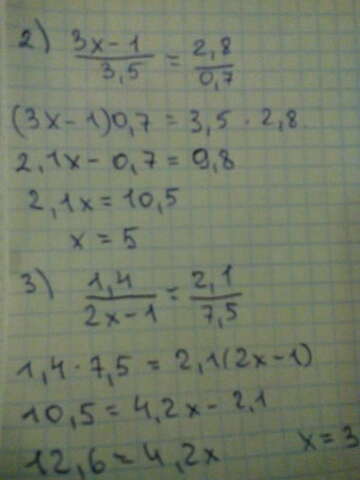 2) (3x-1)/3,5 = 2,8/0,7
(3x-1)0,7 = 3,5 · 2,8
2,1x - 0,7 = 9,8
2,1x = 10,5
x = 5
3) 1,4/(2x-1) = 2,1/7,5
1,4 · 7,5 = 2,1(2x-1)
10,5 = 4,2x - 2,1
12,6 = 4,2x x = 3